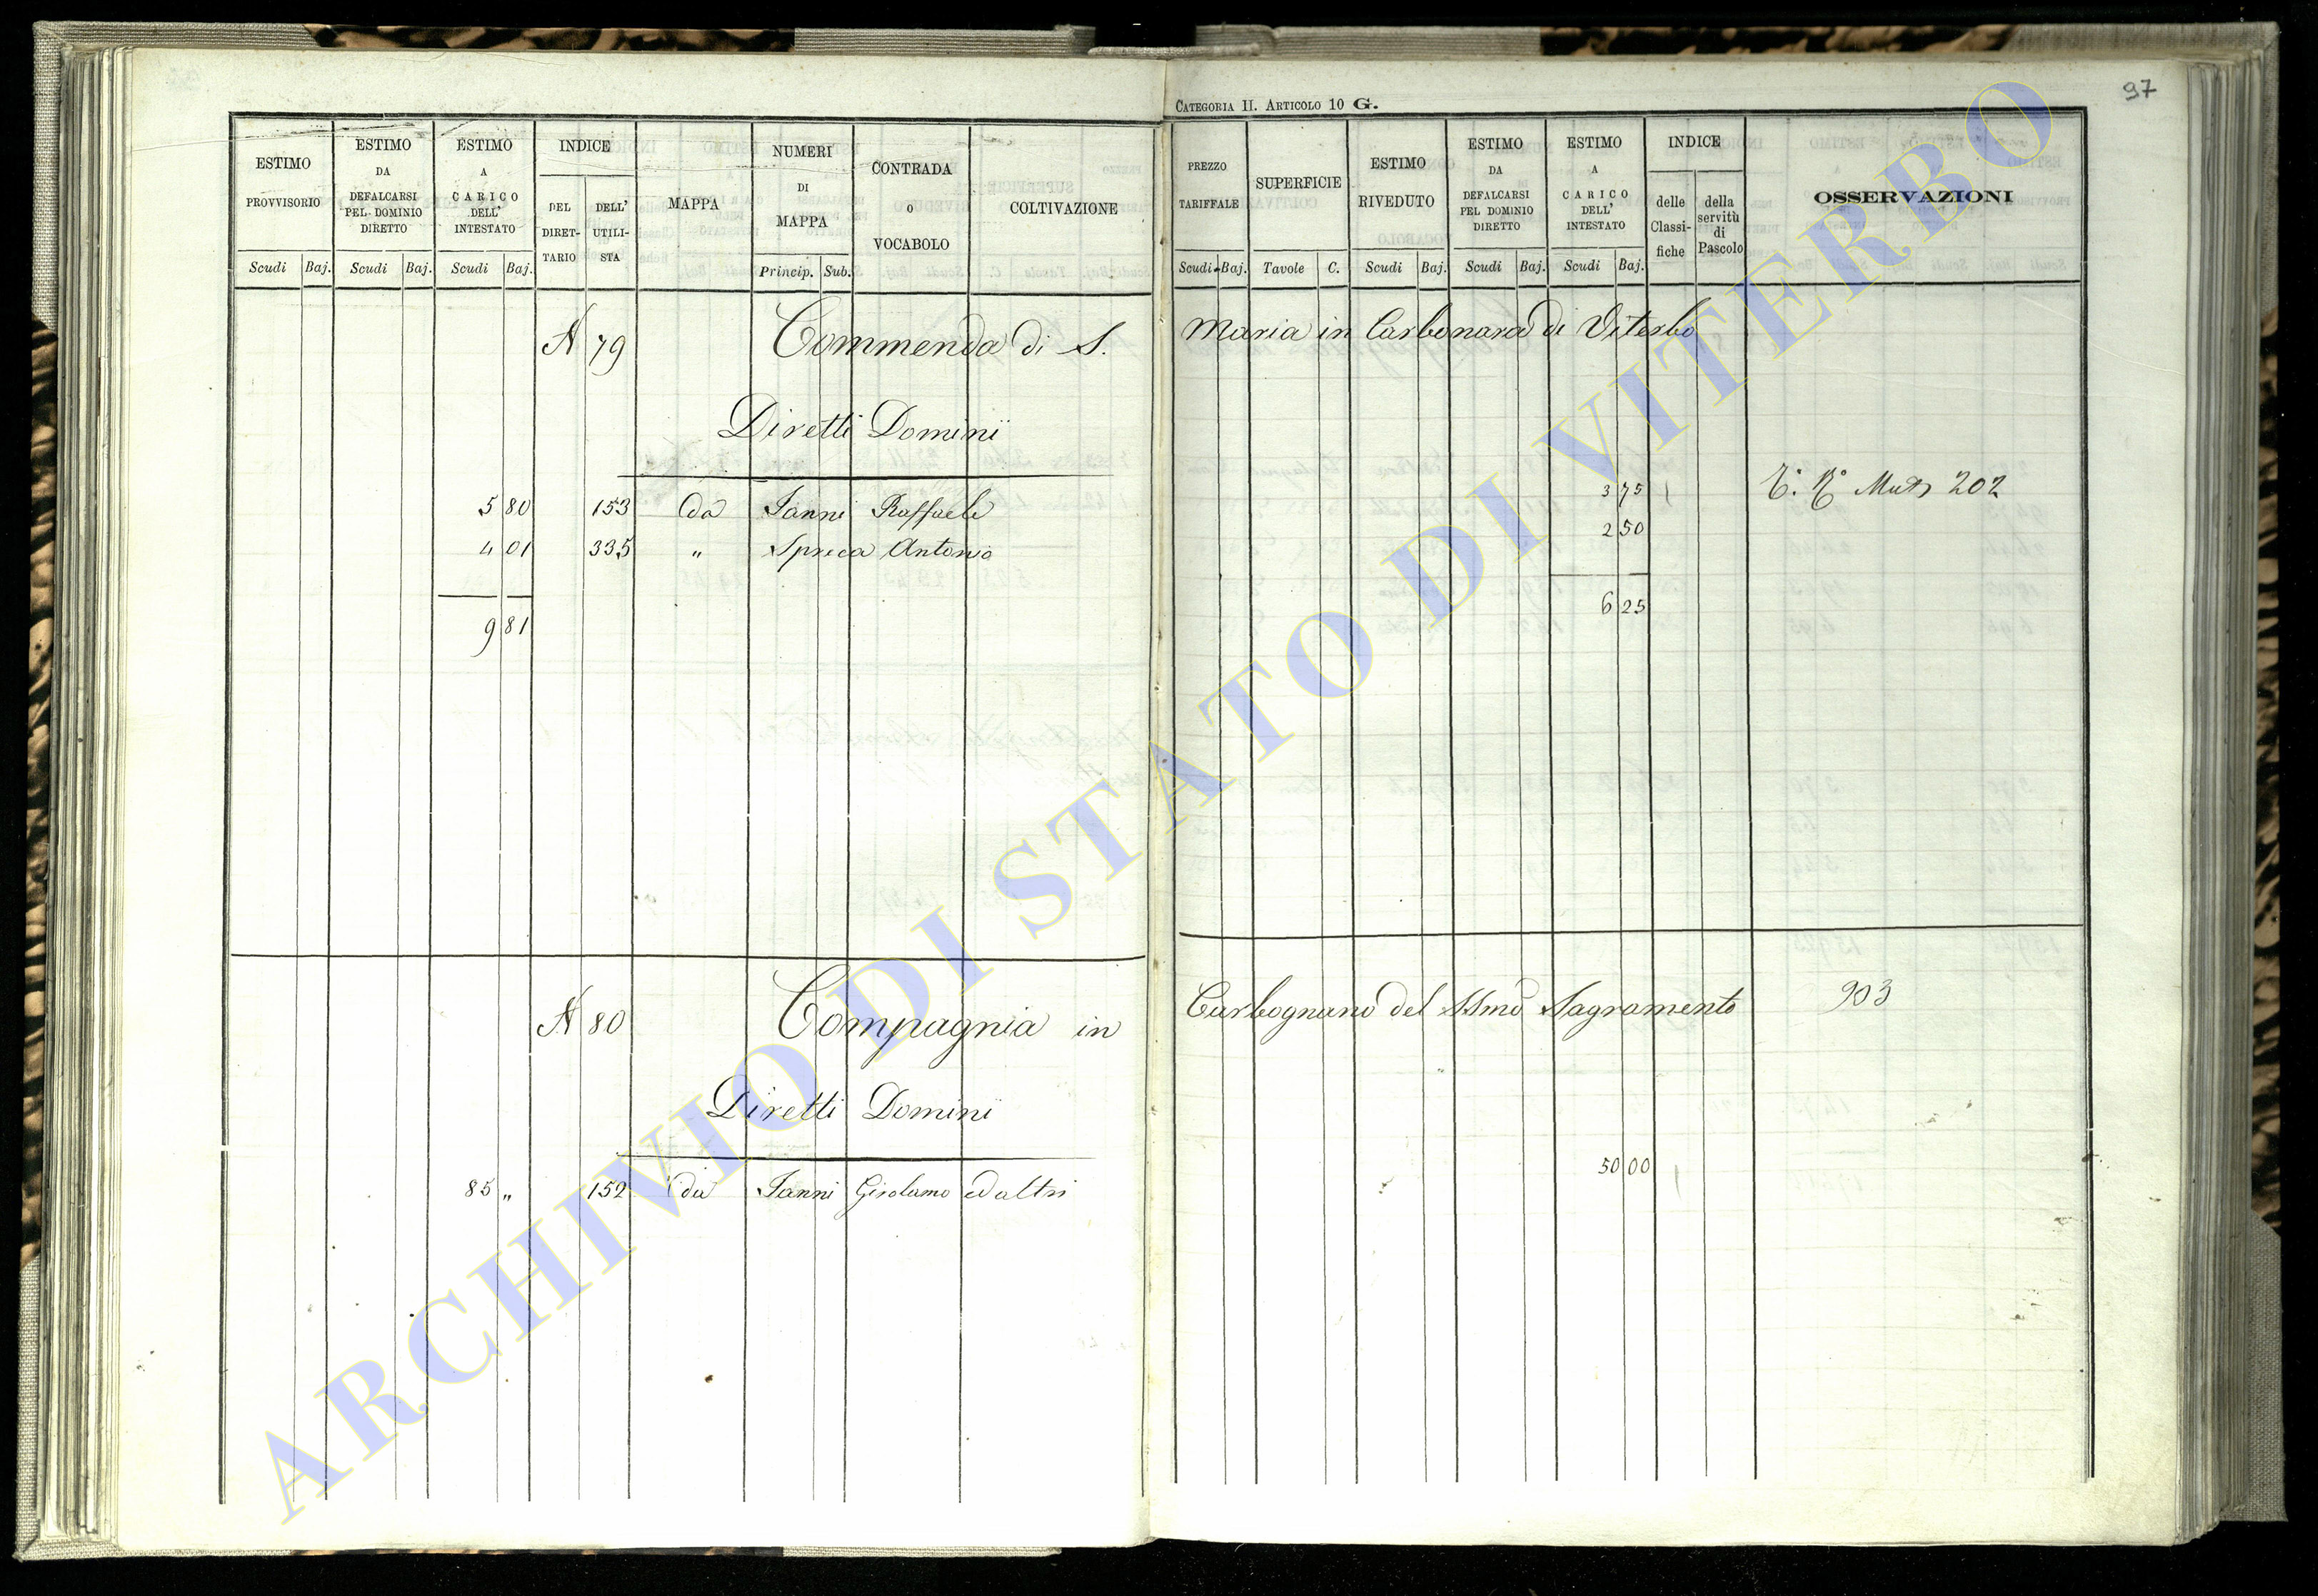 97
CATEGORIA II. ARTICOLO 10 G.
ESTIMO PROVVISORIO
ESTIMO DA DEFALCARSI PEL DOMINIO DIRETTO
ESTIMO A CARICO DELL' INTESTATO
INDICE
DEL DIRET-TARIO
DELL' UTILI-STA
MAPPA
NUMERI DI MAPPA
CONTRADA O VOCABOLO
COLTIVAZIONE
Scudi Baj. Scudi Baj. Scudi Baj. Princip. Sub.
PREZZO TARIFFALE
SUPERFICIE
ESTIMO RIVEDUTO
ESTIMO DA DEFALCARSI PEL DOMINIO DIRETTO
ESTIMO A CARICO DELL' INTESTATO
INDICE
delle Classi-fiche
della servitù di Pascolo
OSSERVAZIONI
Scudi Baj. Tavole C. Scudi Baj. Scudi Baj. Scudi Baj.
N 79 Commenda di S. Maria in Carbonara di Viterbo
Diretti Dominii
5 80 153 da Ianni Raffaele 3 75
4 01 335 „ Spreca Antonio 2 50
9 81 6 25
202
N 80 Compagnia in Carbognano del SSmo Sagramento 903
Diretti Dominii
85 „ 152 da Ianni Girolamo ed altri 50 00
ARCHIVIO DI STATO DI VITERBO